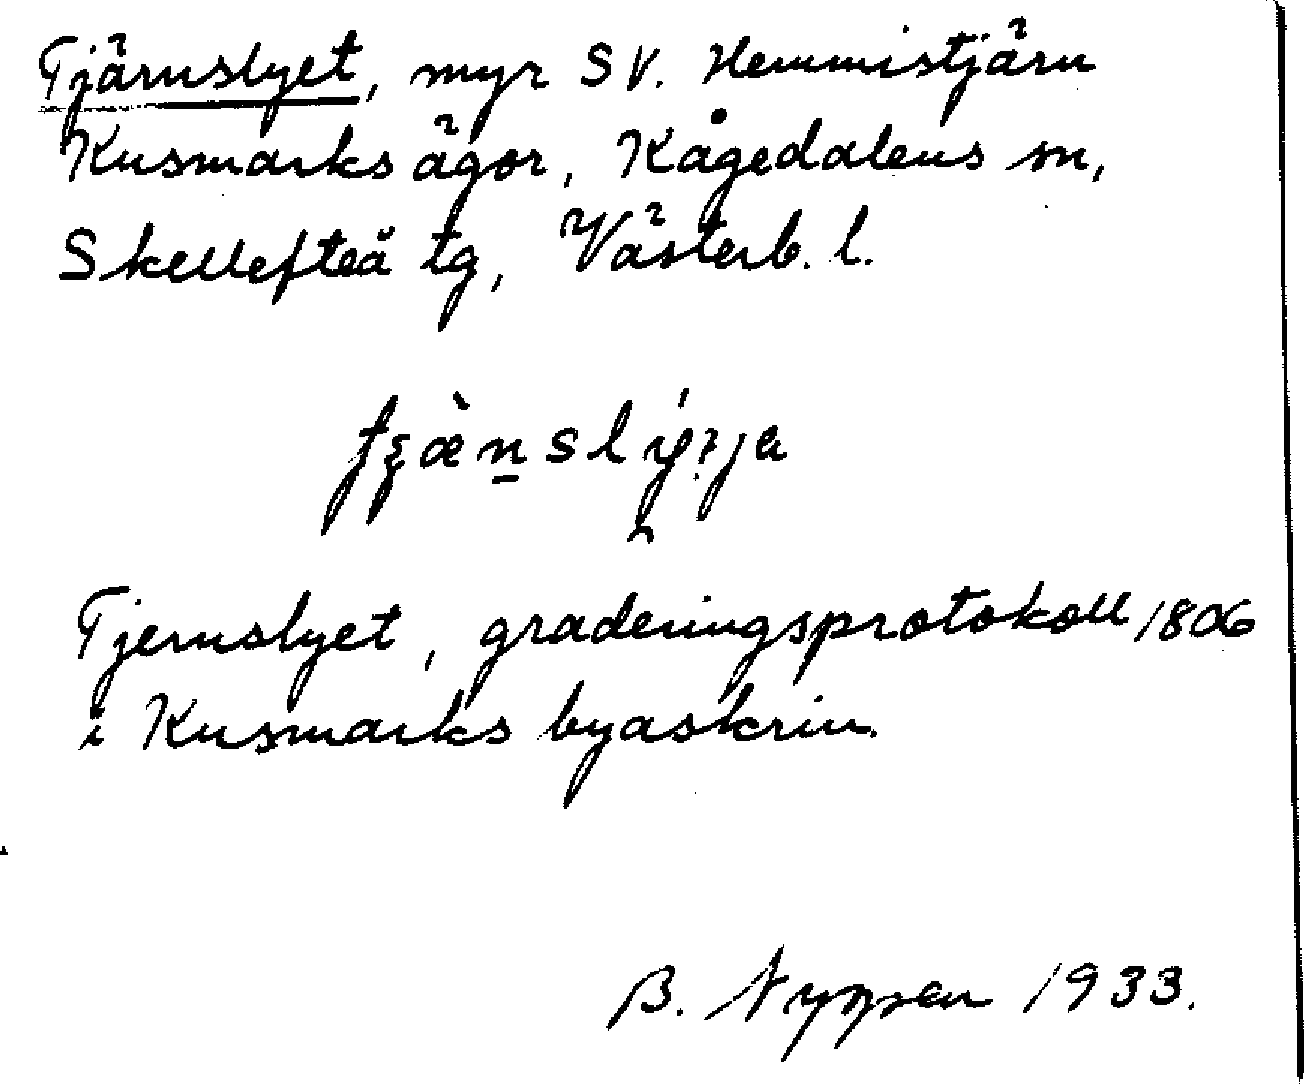 Tjärnslyet, myr SV. Hemmistjärn
Kusmarks ägor, Kågedalens sn,
Skellefteå tg, Västerb. l.
Tjernslyet, graderingsprotokoll 1806
i Kusmarks byaskrin.
B. 1933.